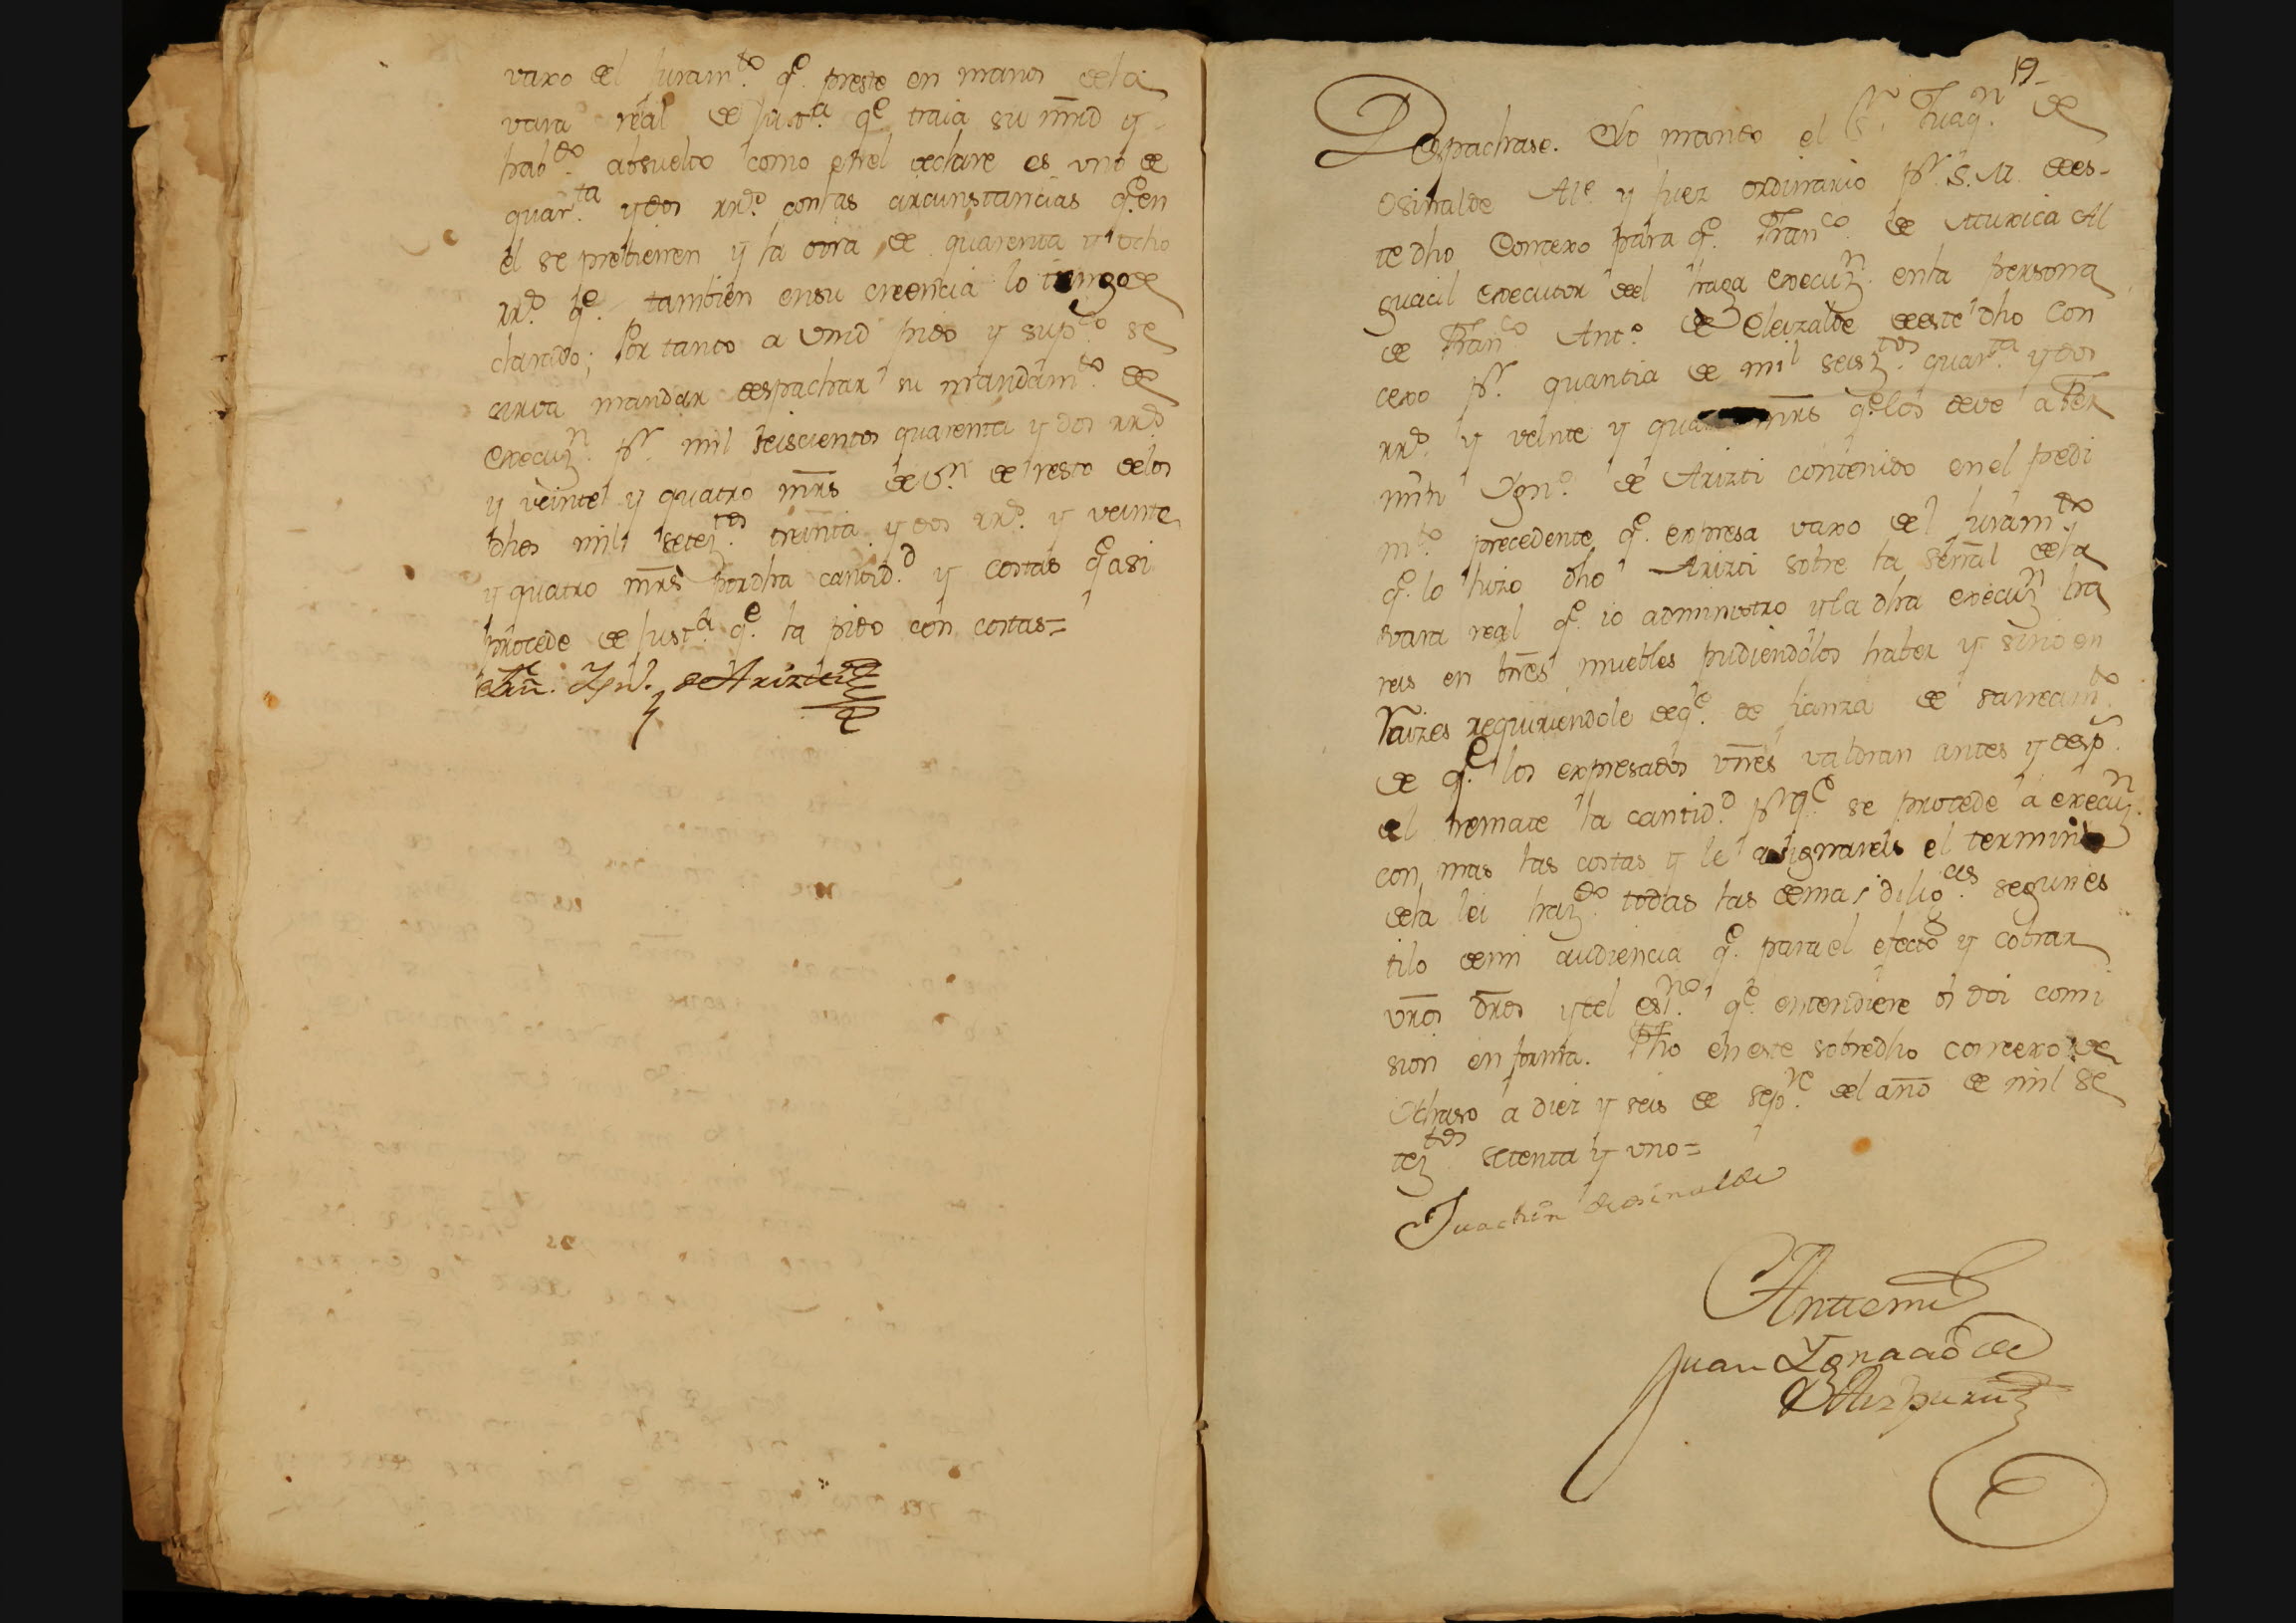 vaxo del juram.to q.e preste en manos dela
vara real de just.a q.e traia su mrd y
hab.do absuelto como enel declare es uno de
quar.ta y dos rr.s con las circunstancias q.e en
el se previenen y la otra de quarenta y ocho
rr.s q.e tambien ensu creencia lo tengo de
clarado; Por tanto a Vmd pido y sup.co se
sirva mandar despachar su mandam.to de
execuz.n p.r mil seiscientos quarenta y dos rr.s
y veinte y quatro mrs de v.n de resto delos
dhos mil setez.tos treinta y dos rr.s y veinte
y quatro mrs por dha cantid.d y costas q.e asi
procede de just.a q.e la pido con costas=
Fermn. Ygn.o de Arizti
19
Despachase. Lo mando el S.r Juaq.n de
Osinalde Al.e y juez ordinario p.r S.M. de es-
te dho Concexo para q.e Fran.co de Muxica Al
guacil executor del haga execuz.n enla persona
de Fran.co Ant.o de Eleizalde deeste dho Con
cexo p.r quantia de mil seisz.tos quar.ta y dos
rr.s y veinte y quatro mrs q.e los deve a Fer
min Ygn.o de Arizti contenido en el pedi
m.to precedente q.e expresa vaxo del juram.to
q.e lo hizo dho Arizti sobre la señal dela
vara real q.e io administro y la dha execuz.n ha
reis en vnes muebles pudiendolos haber y sino en
Raizes requiriendole deq.e de fianza de saneam.to
de q.e los expresados vnes valdran antes y desp.s
del remate la cantid.d p.r q.e se procede a execuz.n
con mas las costas y le asignareis el termino
dela lei haz.do todas las demas dilig.cias segun es
tilo demi audiencia q.e para el efecto y cobrar
vros dros y del es.no q.e entendiere os doi comi
sion en forma. Fho en este sobredho concexo de
Ochaso a diez y seis de sep.re del año de mil se
tez.tos setenta y uno=
Juachin de osinalde
Antte mi
Juan Ygnacio de
Aizpuru